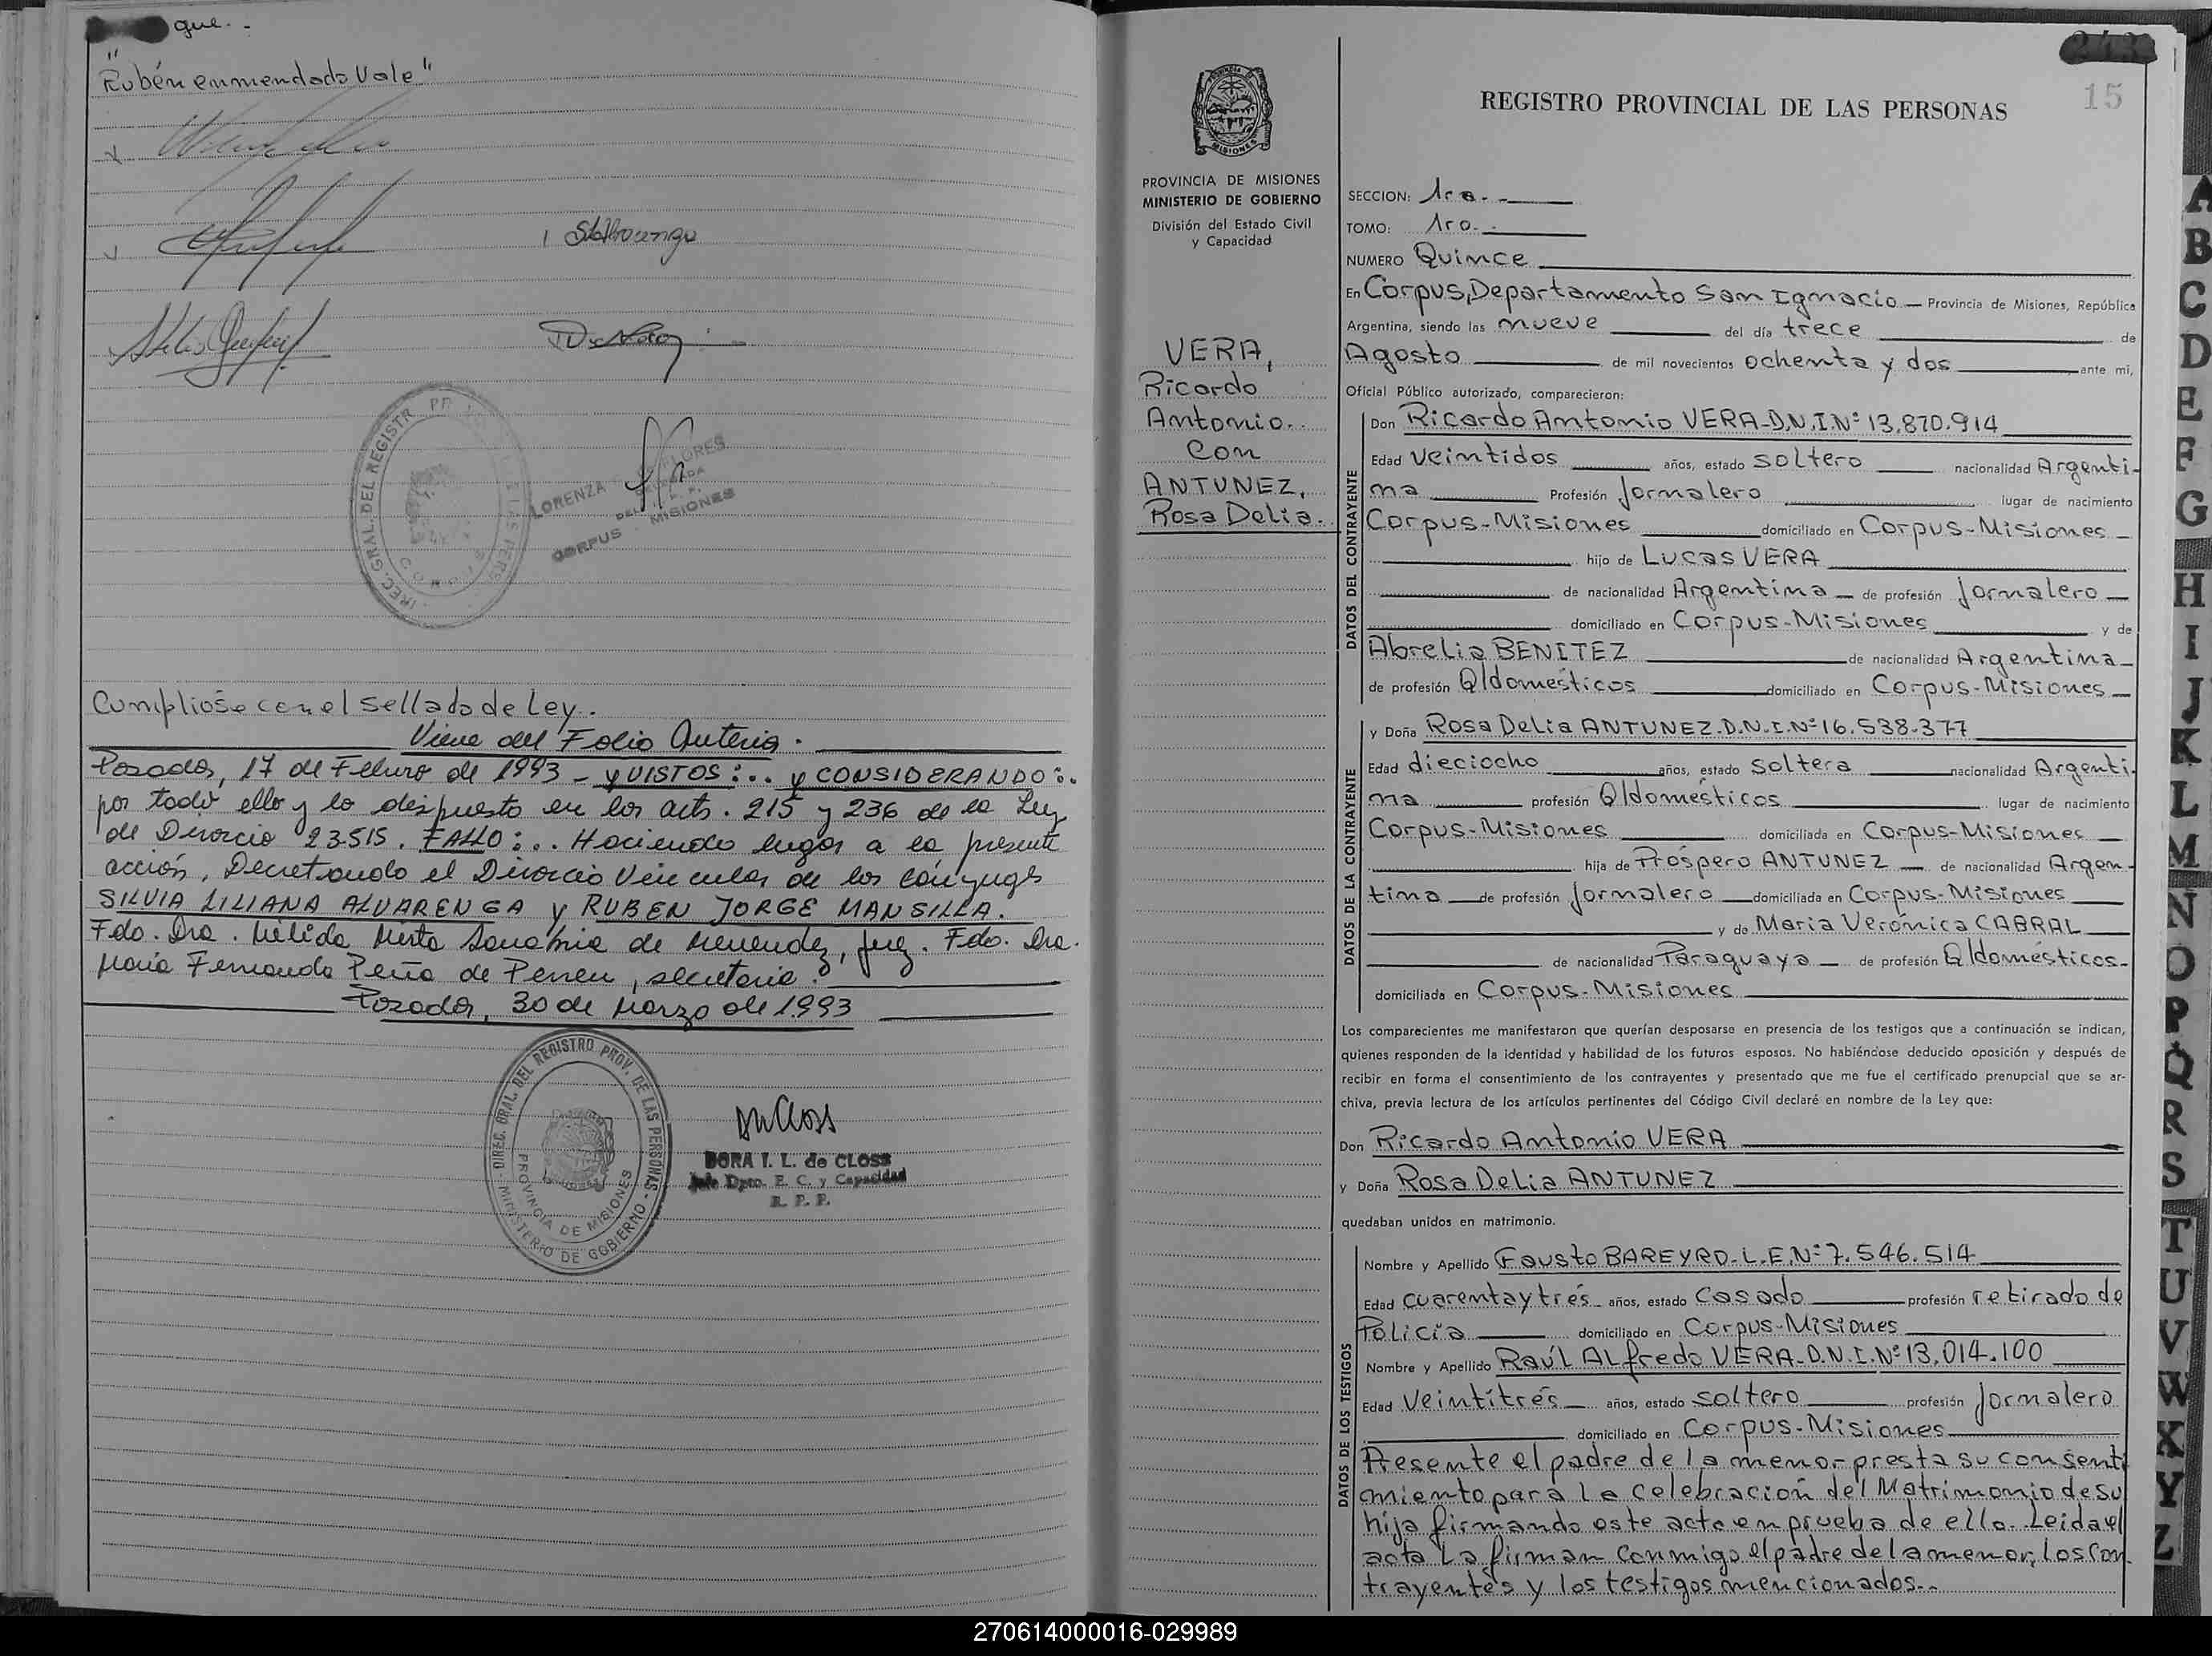 que.-
"Rubén enmendado Vale"
LORENZA FLORES
CORPUS - MISIONES
Cumplióse con el sellado de Ley.
Viene del Folio Anterior.
Posadas, 17 de Febrero de 1993 - y VISTOS:.. y CONSIDERANDO:.
por todo ello y lo dispuesto en los arts. 215 y 236 de la Ley
de Divorcio 23.515. FALLO:.. Haciendo lugar a la presente
acción, Decretando el Divorcio Vincular de los cónyuges
SILVIA LILIANA ALVARENGA y RUBEN JORGE MANSILLA.
Fdo. Dra. Mirta de Menendez, Juez. Fdo. Dra.
María Fernanda Peña de , secretaria.
Posadas, 30 de Marzo de 1.993
DIREC. GRAL. DEL REGISTRO PROV. DE LAS PERSONAS - MINISTERIO DE GOBIERNO -
PROVINCIA DE MISIONES
DORA I. L. de CLOSS
Jefe Dpto. E. C. y Capacidad
R. P. P.
PROVINCIA DE MISIONES
MINISTERIO DE GOBIERNO
División del Estado Civil
y Capacidad
VERA,
Ricardo
Antonio.
Con
ANTUNEZ,
Rosa Delia.
REGISTRO PROVINCIAL DE LAS PERSONAS
15
SECCION: 1ra.-
TOMO: 1ro.-
NUMERO Quince
En Corpus, Departamento San Ignacio - Provincia de Misiones, República
Argentina, siendo las nueve del día trece de
Agosto de mil novecientos ochenta y dos ante mi,
Oficial Público autorizado, comparecieron:
DATOS DEL CONTRAYENTE
Don Ricardo Antonio VERA-D.N.I.Nº 13.870.914
Edad veintidos años, estado soltero nacionalidad Argenti-
na Profesión Jornalero lugar de nacimiento
Corpus-Misiones domiciliado en Corpus-Misiones
hijo de Lucas VERA
de nacionalidad Argentina de profesión Jornalero
domiciliado en Corpus-Misiones y de
Abrelia BENITEZ de nacionalidad Argentina
de profesión Q/domésticos domiciliado en Corpus-Misiones
DATOS DE LA CONTRAYENTE
y Doña Rosa Delia ANTUNEZ.D.N.I.Nº 16.538.377
Edad dieciocho años, estado soltera nacionalidad Argenti-
na profesión Q/domésticos lugar de nacimiento
Corpus-Misiones domiciliada en Corpus-Misiones
hija de Próspero ANTUNEZ de nacionalidad Argen-
tina de profesión Jornalero domiciliada en Corpus-Misiones
y de Maria Verónica CABRAL
de nacionalidad Paraguaya de profesión Q/domésticos-
domiciliada en Corpus-Misiones
Los comparecientes me manifestaron que querían desposarse en presencia de los testigos que a continuación se indican,
quienes responden de la identidad y habilidad de los futuros esposos. No habiéndose deducido oposición y después de
recibir en forma el consentimiento de los contrayentes y presentado que me fue el certificado prenupcial que se ar-
chiva, previa lectura de los artículos pertinentes del Código Civil declaré en nombre de la Ley que:
Don Ricardo Antonio VERA
y Doña Rosa Delia ANTUNEZ
quedaban unidos en matrimonio.
DATOS DE LOS TESTIGOS
Nombre y Apellido Fausto BAREYRO-L.E.Nº 7.546.514
Edad cuarenta y trés años, estado Casado profesión retirado de
Policía domiciliado en Corpus-Misiones
Nombre y Apellido Raúl Alfredo VERA-D.N.I.Nº 13.014.100
Edad Veintitrés años, estado soltero profesión Jornalero
domiciliado en Corpus-Misiones
Presente el padre de la menor presta su consenti
miento para la celebración del Matrimonio de su
hija firmando este acta en prueba de ello. Leida el
acta La firman conmigo el padre de la menor, los Con-
trayentes y los testigos mencionados.-
A
B
C
D
E
F
G
H
I
J
K
L
M
N
O
P
Q
R
S
T
U
V
W
X
Y
Z
270614000016-029989